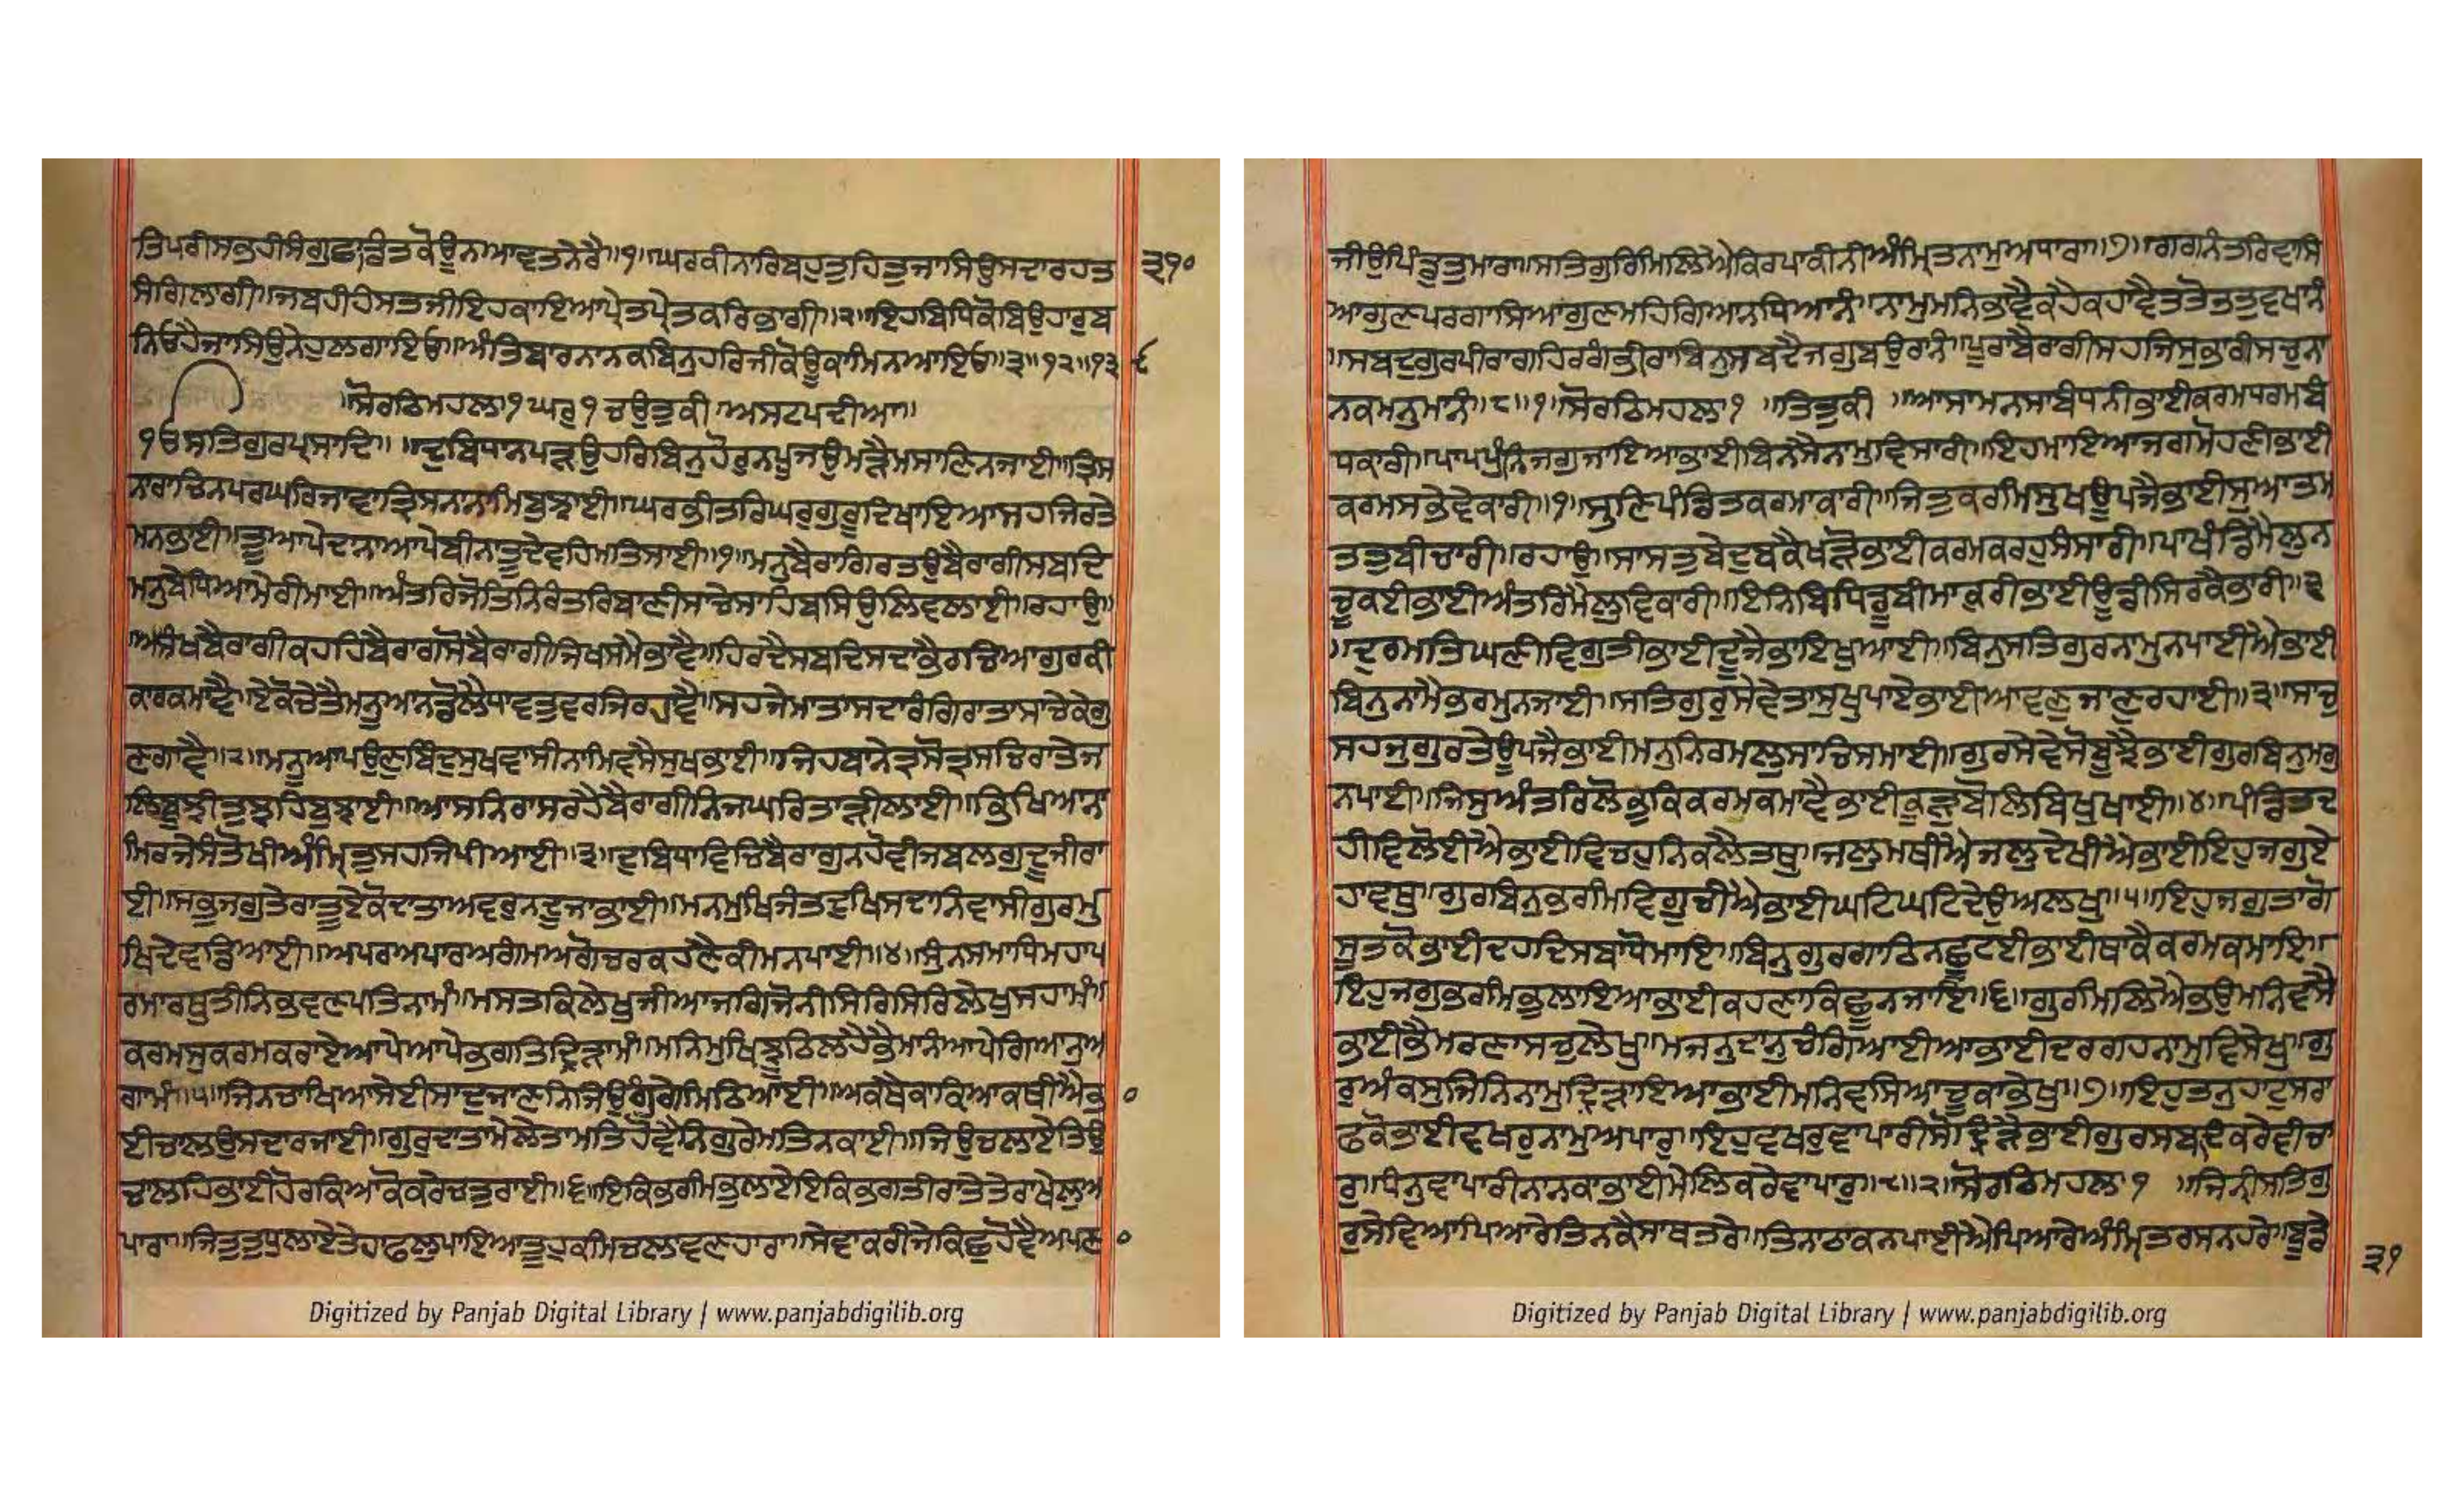 ਤਿਪਰੀਸਭਹੀਸੰਗੁਛਾਡਿਤਕੋਊਨਆਵਤਨੇਰੈ॥੧॥ਘਰਕੀਨਾਰਿਬਹੁਤੁਹਿਤੁਜਾਸਿਉਸਦਾਰਹਤ ੩੧੦
ਸੰਗਿਲਾਗੀ॥ਜਬਹੀਹੰਸਤਜੀਇਹਕਾਇਆਪ੍ਰੇਤਪ੍ਰੇਤਕਰਿਭਾਗੀ॥੨॥ਇਹਬਿਧਿਕੋਬਿਉਹਾਰੁਬ
ਨਿਓਹੈਜਾਸਿਉਨੇਹੁਲਗਾਇਓ॥ਅੰਤਿਬਾਰਨਾਨਕਬਿਨੁਹਰਿਜੀਕੋਊਕਾਮਿਨਆਇਓ॥੩॥੧੨॥੧੩੯
॥ਸੋਰਠਿਮਹਲਾ੧ਘਰੁ੧ਚਉਤੁਕੀ॥ਅਸਟਪਦੀਆ॥
ੴਸਤਿਗੁਰਪ੍ਰਸਾਦਿ॥॥ਦੁਬਿਧਾਨਪੜਉਹਰਿਬਿਨੁਹੋਰੁਨਪੂਜਉਮੜੈਮਸਾਣਿਨਜਾਈ॥ਤ੍ਰਿਸ
ਨਾਰਾਚਿਨਪਰਘਰਿਜਾਵਾਤ੍ਰਿਸਨਾਨਾਮਿਬੁਝਾਈ॥ਘਰਭੀਤਰਿਘਰੁਗੁਰੂਦਿਖਾਇਆਸਹਜਿਰਤੇ
ਮਨਭਾਈ॥ਤੂਆਪੇਦਾਨਾਆਪੇਬੀਨਾਤੂਦੇਵਹਿਮਤਿਸਾਈ॥੧॥ਮਨੁਬੈਰਾਗਿਰਤਉਬੈਰਾਗੀਸਬਦਿ
ਮਨੁਬੇਧਿਆਮੇਰੀਮਾਈ॥ਅੰਤਰਿਜੋਤਿਨਿਰੰਤਰਿਬਾਣੀਸਾਚੇਸਾਹਿਬਸਿਉਲਿਵਲਾਈ॥ਰਹਾਉ॥
॥ਅਸੰਖਬੈਰਾਗੀਕਹਹਿਬੈਰਾਗਸੋਬੈਰਾਗੀਜਿਖਸਮੈਭਾਵੈ॥ਹਿਰਦੈਸਬਦਿਸਦਾਭੈਰਚਿਆਗੁਰਕੀ
ਕਾਰਕਮਾਵੈ॥ਏਕੋਚੇਤੈਮਨੂਆਨਡੋਲੈਧਾਵਤੁਵਰਜਿਰਹਾਵੈ॥ਸਹਜੇਮਾਤਾਸਦਾਰੰਗਿਰਾਤਾਸਾਚੇਕੇਗੁ
ਣਗਾਵੈ॥੨॥ਮਨੂਆਪਉਣੁਬਿੰਦੁਸੁਖਵਾਸੀਨਾਮਿਵਸੈਸੁਖਭਾਈ॥ਜਿਹਬਾਨੇਤ੍ਰਸੋਤ੍ਰਸਚਿਰਾਤੇਜ
ਲਿਬੂਝੀਤੁਝਹਿਬੁਝਾਈ॥ਆਸਨਿਰਾਸਰਹੈਬੈਰਾਗੀਨਿਜਘਰਿਤਾੜੀਲਾਈ॥ਭਿਖਿਆਨਾ
ਮਿਰਜੇਸੰਤੋਖੀਅੰਮ੍ਰਿਤੁਸਹਜਿਪੀਆਈ॥੩॥ਦੁਬਿਧਾਵਿਚਿਬੈਰਾਗੁਨਹੋਵੀਜਬਲਗੁਦੂਜੀਰਾ
ਈ॥ਸਭੁਜਗੁਤੇਰਾਤੂਏਕੋਦਾਤਾਅਵਰੁਨਦੂਜਾਭਾਈ॥ਮਨਮੁਖਿਜੰਤਦੁਖਿਸਦਾਨਿਵਾਸੀਗੁਰਮੁ
ਖਿਦੇਵਡਿਆਈ॥ਅਪਰਅਪਾਰਅਗੰਮਅਗੋਚਰਕਹਣੈਕੀਮਨਪਾਈ॥੪॥ਸੁੰਨਸਮਾਧਿਮਹਾਪ
ਰਮਾਰਥੁਤੀਨਿਭਵਣਪਤਿਨਾਮੰ॥ਮਸਤਕਿਲੇਖੁਜੀਆਜਗਿਜੋਨੀਸਿਰਿਸਿਰਿਲੇਖੁਸਹਾਮੰ॥
ਕਰਮਸੁਕਰਮਕਰਾਏਆਪੇਆਪੇਭਗਤਿਦ੍ਰਿੜਾਮੰ॥ਮਨਿਮੁਖਿਜੂਠਿਲਹੈਭੈਮਾਨੰਆਪੇਗਿਆਨੁਅ
ਗਾਮੰ॥੫॥ਜਿਨਚਾਖਿਆਸੇਈਸਾਦੁਜਾਣਨਿਜਿਉਗੁੰਗੇਮਿਠਿਆਈ॥ਅਕਥੈਕਾਕਿਆਕਥੀਐਭ
ਈਚਾਲਉਸਦਾਰਜਾਈ॥ਗੁਰੁਦਾਤਾਮੇਲੇਤਾਮਤਿਹੋਵੈਨਿਗੁਰੇਮਤਿਨਕਾਈ॥ਜਿਉਚਲਾਏਤਿਉ
ਚਾਲਹਿਭਾਈਹੋਰਕਿਆਕੋਕਰੇਚਤੁਰਾਈ॥੬॥ਇਕਿਭਰਮਿਭੁਲਾਏਇਕਿਭਗਤੀਰਾਤੇਤੇਰਾਖੇਲੁਅ
ਪਾਰਾ॥ਜਿਤੁਤੁਧੁਲਾਏਤੇਹਾਫਲੁਪਾਇਆਤੂਹੁਕਮਿਚਲਾਵਣਹਾਰਾ॥ਸੇਵਾਕਰੀਜੇਕਿਛੁਹੋਵੈਅਪਣਾ
Digitized by Panjab Digital Library | www.panjabdigilib.org
ਜੀਉਪਿੰਡੁਤੁਮਾਰਾ॥ਸਤਿਗੁਰਿਮਿਲਿਐਕਿਰਪਾਕੀਨੀਅੰਮ੍ਰਿਤਨਾਮੁਅਧਾਰਾ॥੭॥ਗਗਨੰਤਰਿਵਾਸਿ
ਆਗੁਣਪਰਗਾਸਿਆਗੁਣਮਹਿਗਿਆਨਧਿਆਨੰ॥ਨਾਮੁਮਨਿਭਾਵੈਕਹੈਕਹਾਵੈਤਤੋਤਤੁਵਖਾਨੰ
॥ਸਬਦੁਗੁਰਪੀਰਾਗਹਿਰਗੰਭੀਰਾਬਿਨੁਸਬਦੈਜਗੁਬਉਰਾਨੰ॥ਪੂਰਾਬੈਰਾਗੀਸਹਜਿਸੁਭਾਗੀਸਚੁਨਾ
ਨਕਮਨੁਮਾਨੰ॥੮॥੧॥ਸੋਰਠਿਮਹਲਾ੧ ॥ਤਿਤੁਕੀ ॥ਆਸਾਮਨਸਾਬੰਧਨੀਭਾਈਕਰਮਧਰਮਬੰ
ਧਕਾਰੀ॥ਪਾਪਪੁੰਨਿਜਗੁਜਾਇਆਭਾਈਬਿਨਸੈਨਾਮੁਵਿਸਾਰੀ॥ਇਹਮਾਇਆਜਗਮੋਹਣੀਭਾਈ
ਕਰਮਸਭੇਵੇਕਾਰੀ॥੧॥ਸੁਣਿਪੰਡਿਤਕਰਮਾਕਾਰੀ॥ਜਿਤੁਕਰਮਿਸੁਖਊਪਜੈਭਾਈਸੁਆਤਮ
ਤਤੁਬੀਚਾਰੀ॥ਰਹਾਉ॥ਸਾਸਤੁਬੇਦੁਬਕੈਖੜੋਭਾਈਕਰਮਕਰਹੁਸੰਸਾਰੀ॥ਪਾਖੰਡਿਮੈਲੁਨ
ਚੂਕਈਭਾਈਅੰਤਰਿਮੈਲੁਵਿਕਾਰੀ॥ਇਨਿਬਿਧਿਡੂਬੀਮਾਕੁਰੀਭਾਈਊਂਡੀਸਿਰਕੈਭਾਰੀ॥੨
॥ਦੁਰਮਤਿਘਣੀਵਿਗੁਤੀਭਾਈਦੂਜੈਭਾਇਖੁਆਈ॥ਬਿਨੁਸਤਿਗੁਰਨਾਮੁਨਪਾਈਐਭਾਈ
ਬਿਨੁਨਾਮੈਭਰਮੁਨਜਾਈ॥ਸਤਿਗੁਰੁਸੇਵੇਤਾਸੁਖੁਪਾਏਭਾਈਆਵਣੁਜਾਣੁਰਹਾਈ॥੩॥ਸਾਚੁ
ਸਹਜੁਗੁਰਤੇਊਪਜੈਭਾਈਮਨੁਨਿਰਮਲੁਸਾਚਿਸਮਾਈ॥ਗੁਰਸੇਵੇਸੋਬੂਝੈਭਾਈਗੁਰਬਿਨੁਮਗੁ
ਨਪਾਈ॥ਜਿਸੁਅੰਤਰਿਲੋਭੁਕਿਕਰਮਕਮਾਵੈਭਾਈਕੂੜੁਬੋਲਿਬਿਖੁਖਾਈ॥੪॥ਪੰਡਿਤਦ
ਹੀਵਿਲੋਈਐਭਾਈਵਿਚਹੁਨਿਕਲੈਤਥੁ॥ਜਲੁਮਥੀਐਜਲੁਦੇਖੀਐਭਾਈਇਹੁਜਗੁਏ
ਹਾਵਥੁ॥ਗੁਰਬਿਨੁਭਰਮਿਵਿਗੂਚੀਐਭਾਈਘਟਿਘਟਿਦੇਉਅਲਖੁ॥੫॥ਇਹੁਜਗੁਤਾਗੋ
ਸੂਤਕੋਭਾਈਦਹਦਿਸਬਾਧੋਮਾਇ॥ਬਿਨੁਗੁਰਗਾਠਿਨਛੂਟਈਭਾਈਥਾਕੈਕਰਮਕਮਾਇ॥
ਇਹੁਜਗੁਭਰਮਿਭੁਲਾਇਆਭਾਈਕਹਣਾਕਿਛੂਨਜਾਇ॥੬॥ਗੁਰਮਿਲਿਐਭਉਮਨਿਵਸੈ
ਭਾਈਭੈਮਰਣਾਸਚੁਲੇਖੁ॥ਮਜਨੁਦਾਨੁਚੰਗਿਆਈਆਭਾਈਦਰਗਹਨਾਮੁਵਿਸੇਖੁ॥ਗੁ
ਰੁਅੰਕਸੁਜਿਨਿਨਾਮੁਦ੍ਰਿੜਾਇਆਭਾਈਮਨਿਵਸਿਆਚੂਕਾਭੇਖੁ॥੭॥ਇਹੁਤਨੁਹਾਟੁਸਰਾ
ਫਕੋਭਾਈਵਖਰੁਨਾਮੁਅਪਾਰੁ॥ਇਹੁਵਖਰੁਵਾਪਾਰੀਸੋਦ੍ਰਿੜੈਭਾਈਗੁਰਸਬਦਿਕਰੇਵੀਚਾ
ਰੁ॥ਧਨੁਵਾਪਾਰੀਨਾਨਕਾਭਾਈਮੇਲਿਕਰੇਵਾਪਾਰੁ॥੮॥੨॥ਸੋਰਠਿਮਹਲਾ੧ ॥ਜਿਨੀਸਤਿਗੁ
ਰੁਸੇਵਿਆਪਿਆਰੇਤਿਨਕੇਸਾਥਤਰੇ॥ਤਿਨਾਠਾਕਨਪਾਈਐਪਿਆਰੇਅੰਮ੍ਰਿਤਰਸਨਹਰੇ॥ਬੂਡੇ
੩੧
Digitized by Panjab Digital Library | www.panjabdigilib.org